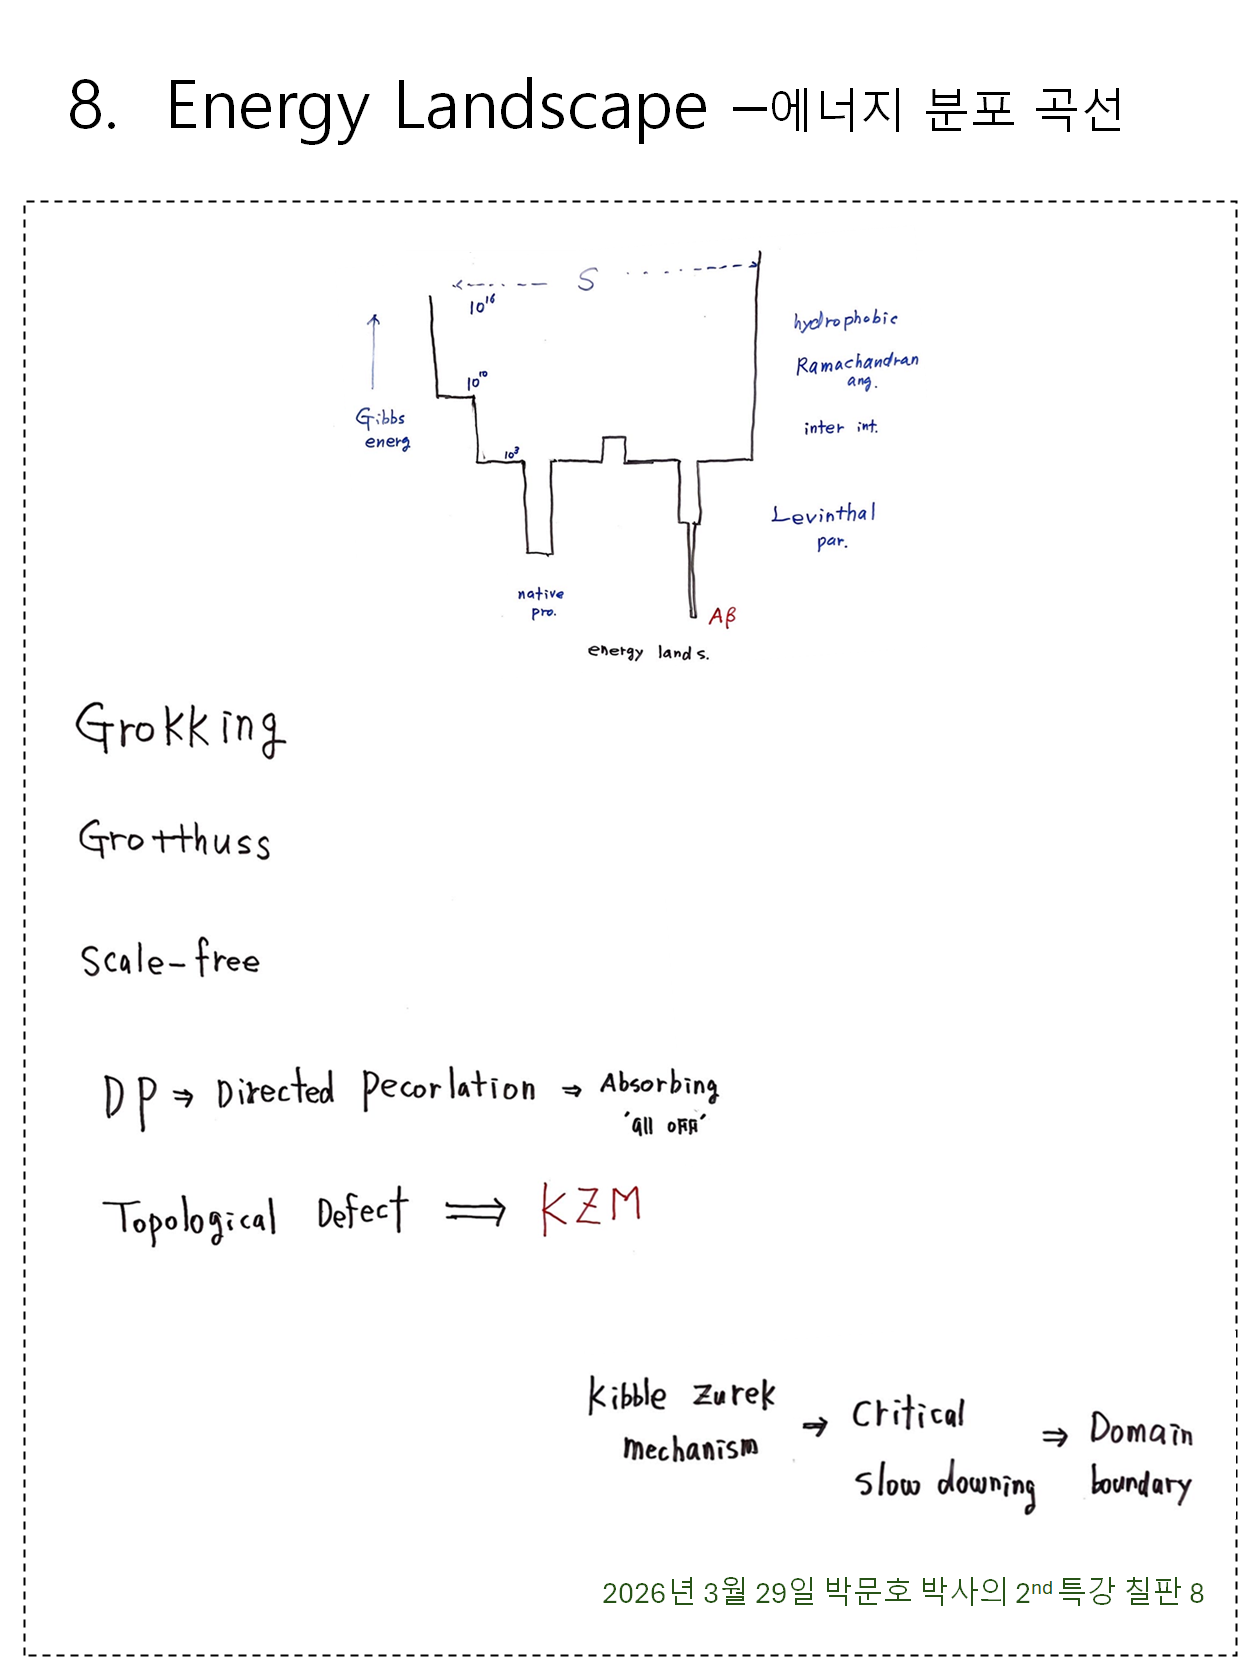 8. Energy Landscape –에너지 분포 곡선
S
10¹⁶
hydrophobic
Ramachandran
ang.
10¹⁰
Gibbs
energ
inter int.
10³
Levinthal
par.
native
pro.
Aβ
energy lands.
Grokking
Grotthuss
Scale-free
DP ⇒ Directed Pecorlation ⇒ Absorbing
'all off'
Topological Defect ⟹ KZM
Kibble Zurek
mechanism
→ Critical
slow downing
⇒ Domain
boundary
2026년 3월 29일 박문호 박사의 2nd 특강 칠판 8